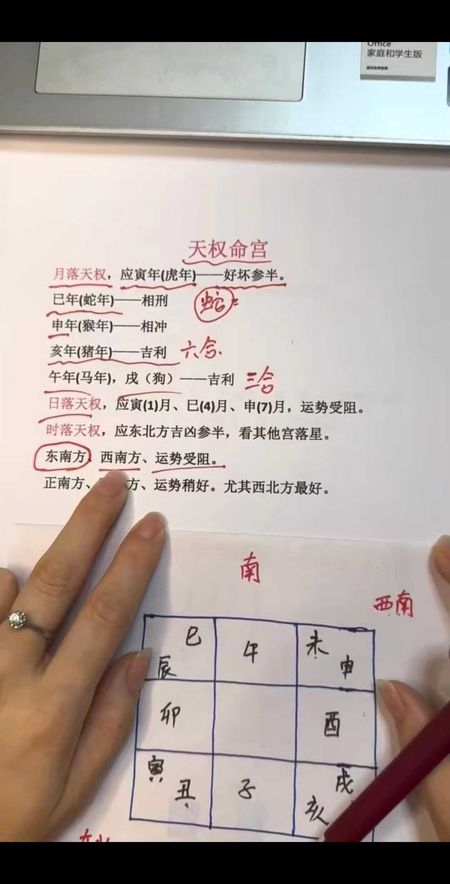 Office
家庭和学生版
天权命宫
月落天权，应寅年(虎年)——好坏参半。
巳年(蛇年)——相刑 蛇
申年(猴年)——相冲
亥年(猪年)——吉利 六合
午年(马年)，戌（狗）——吉利 三合
日落天权，应寅(1)月、巳(4)月、申(7)月，运势受阻。
时落天权，应东北方吉凶参半，看其他宫落星。
东南方 西南方、运势受阻。
正南方、方、运势稍好。尤其西北方最好。
南
西南
巳 午 未
辰 申
卯 酉
寅 戌
丑 子 亥